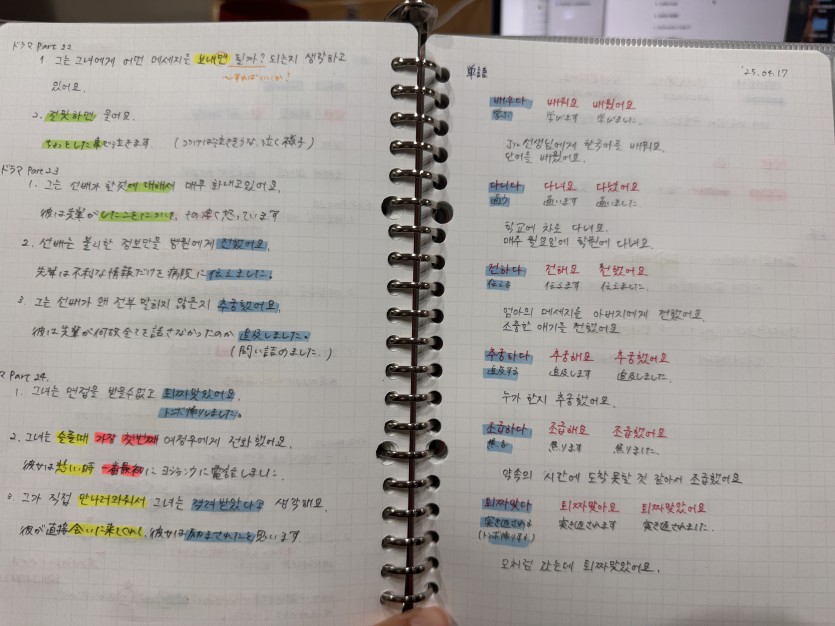 ドラマ Part 22
1. 그는 그녀에게 어떤 메세지를 보내면 될까? 되는지 생각하고
~すればいいか?
있어요.
2. 걸핏하면 울어요.
ちょっとした事で泣きます (コツけば泣きそうな、泣く様子)
ドラマ Part 23
1. 그는 선배가 한것에 대해서 매우 화내고있어요.
彼は先輩がしたことについて、その凄く怒っています
2. 선배는 불리한 정보만을 병원에게 전했어요.
先輩は不利な情報だけを病院に伝えました。
3. 그는 선배가 왜 전부 말하지 않은지 추궁했어요.
彼は先輩が何故全てを話さなかったのか追及しました。
(問い詰めました.)
マ Part 24.
1. 그녀는 면접을 받을수없고 퇴짜맞았어요.
トンボ帰りしました。
2. 그녀는 슬플때 가장 첫번째 여정우에게 전화했어요.
彼女は悲しい時 一番最初に ヨジョンウに電話しました.
3. 그가 직접 만나러와줘서 그녀는 격려받았다고 생각해요.
彼が直接会いに来てくれ、彼女は励まされたと思います.
単語 '25.04.17
배우다 배워요 배웠어요
学ぶ 学びます 学びました.
선생님에게 한국어를 배워요.
단어를 배웠어요.
다니다 다녀요 다녔어요
通う 通います 通いました.
학교에 차로 다녀요.
매주 월요일에 학원에 다녀요.
전하다 전해요 전했어요
伝える 伝えます 伝えました.
엄마의 메세지를 아버지에게 전했어요.
소중한 얘기를 전했어요
추궁하다 추궁해요 추궁했어요
追及する 追及します 追及しました.
누가 한지 추궁했어요.
조급하다 조급해요 조급했어요
焦る 焦ります 焦りました.
약속의 시간에 도착 못할 것 같아서 조급했어요
퇴짜맞다 퇴짜맞아요 퇴짜맞았어요
突き返される 突き返されます 突き返されました.
(トンボ帰りする)
모처럼 갔는데 퇴짜맞았어요.